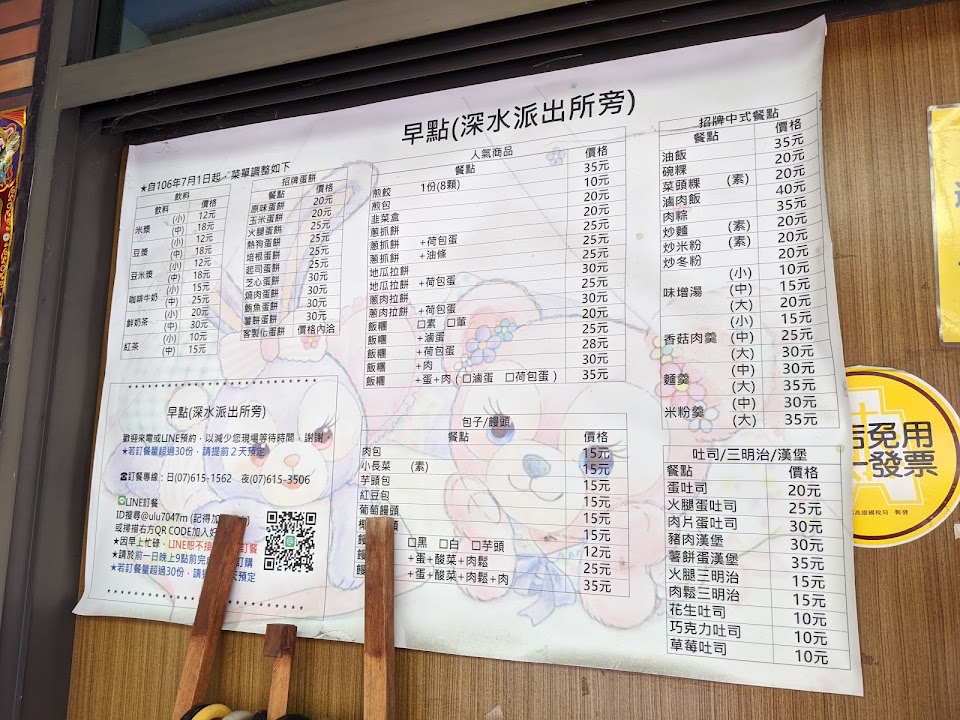 早點(深水派出所旁)
★自106年7月1日起，菜單調整如下
飲料
飲料 價格
米漿 (小) 12元
(中) 18元
豆漿 (小) 12元
(中) 18元
豆米漿 (小) 12元
(中) 18元
咖啡牛奶 (小) 15元
(中) 25元
鮮奶茶 (小) 20元
(中) 30元
紅茶 (小) 10元
(中) 15元
招牌蛋餅
餐點 價格
原味蛋餅 20元
玉米蛋餅 20元
火腿蛋餅 25元
熱狗蛋餅 25元
培根蛋餅 25元
起司蛋餅 25元
芝心蛋餅 30元
燒肉蛋餅 30元
鮪魚蛋餅 30元
薯餅蛋餅 30元
客製化蛋餅 價格內洽
人氣商品
餐點 價格
煎餃 1份(8顆) 35元
煎包 10元
韭菜盒 20元
蔥抓餅 20元
蔥抓餅 +荷包蛋 25元
蔥抓餅 +油條 25元
地瓜拉餅 25元
地瓜拉餅 +荷包蛋 30元
蔥肉拉餅 25元
蔥肉拉餅 +荷包蛋 30元
飯糰 □素 □葷 20元
飯糰 +滷蛋 25元
飯糰 +荷包蛋 28元
飯糰 +肉 30元
飯糰 +蛋+肉(□滷蛋 □荷包蛋) 35元
招牌中式餐點
餐點 價格
油飯 35元
碗粿 20元
菜頭粿 (素) 20元
滷肉飯 40元
肉粽 35元
炒麵 (素) 20元
炒米粉 (素) 20元
炒冬粉 20元
味增湯 (小) 10元
(中) 15元
(大) 20元
香菇肉羹 (小) 15元
(中) 25元
(大) 30元
麵羹 (中) 30元
(大) 35元
米粉羹 (中) 30元
(大) 35元
早點(深水派出所旁)
歡迎來電或LINE預約，以減少您現場等待時間，謝謝。
★若訂餐量超過30份，請提前2天預定
☎訂餐專線：日(07)615-1562 夜(07)615-3506
LINE訂餐
ID搜尋@ulu7047m (記得加
或掃描右方QR CODE加入好
★因早上忙碌，LINE恕不接 訂餐
★請於前一日晚上9點前完 訂購
★若訂餐量超過30份，請 天預定
包子/饅頭
餐點 價格
肉包 15元
小長菜 (素) 15元
芋頭包 15元
紅豆包 15元
葡萄饅頭 15元
頭 15元
饅 □黑 □白 □芋頭 12元
饅 +蛋+酸菜+肉鬆 25元
饅 +蛋+酸菜+肉鬆+肉 35元
吐司/三明治/漢堡
餐點 價格
蛋吐司 20元
火腿蛋吐司 25元
肉片蛋吐司 30元
豬肉漢堡 30元
薯餅蛋漢堡 35元
火腿三明治 15元
肉鬆三明治 15元
花生吐司 10元
巧克力吐司 10元
草莓吐司 10元
店免用
發票
高雄國稅局 製發